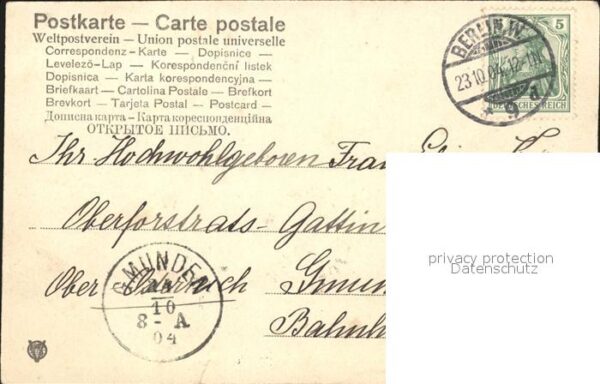 Postkarte — Carte postale
Weltpostverein — Union postale universelle
Correspondenz-Karte — Dopisnice —
Levelező-Lap — Korespondenční lístek
Dopisnica — Karta korespondencyjna —
Briefkaart — Cartolina Postale — Brefkort
Brevkort — Tarjeta Postal — Postcard —
Дописна карта — Карта кореспонденційна
ОТКРЫТОЕ ПИСЬМО.
BERLIN W.
23.10.04. 12-1N
* 9 d
5
DEUTSCHES REICH
Ihr Hochwohlgeboren Frau
Oberforstrats-Gattin
Ober Österreich Gmun
Bahnh
GMUNDEN
24
10
8 - A
04
privacy protection
Datenschutz